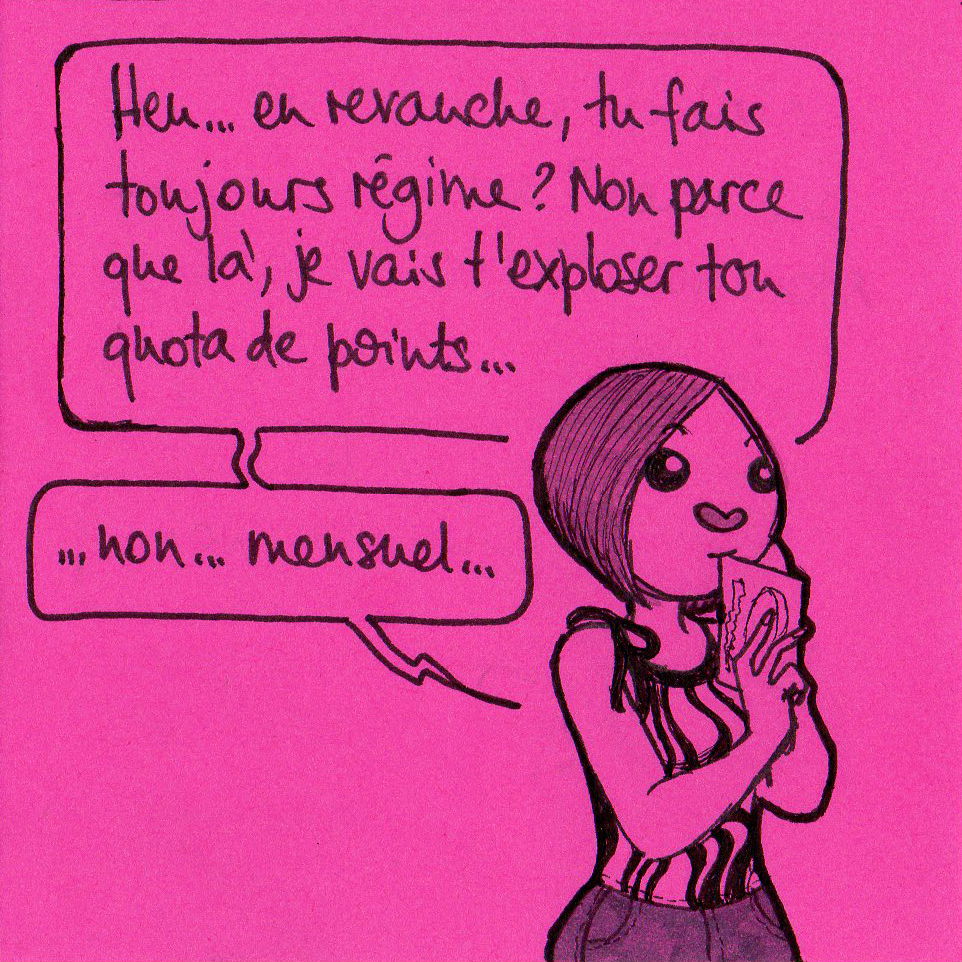 Heu... en revanche, tu fais
toujours régime ? Non parce
que là, je vais t'exploser ton
quota de points...
...non... mensuel...